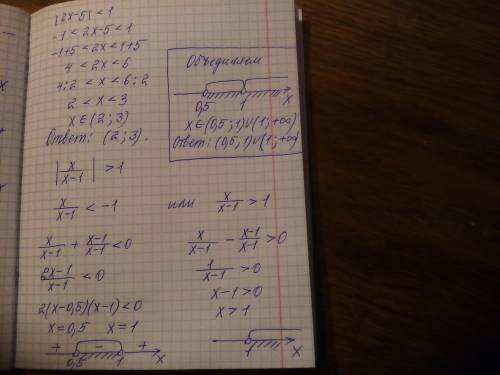 |2x-5| < 1
-1 < 2x-5 < 1
-1+5 < 2x < 1+5
4 < 2x < 6
4:2 < x < 6:2
2 < x < 3
x ∈ (2; 3)
Ответ: (2; 3).
|x/(x-1)| > 1
x/(x-1) < -1 или x/(x-1) > 1
x/(x-1) + (x-1)/(x-1) < 0
(2x-1)/(x-1) < 0
2(x-0,5)(x-1) < 0
x=0,5 x=1
+ - +
0,5 1 x
x/(x-1) - (x-1)/(x-1) > 0
1/(x-1) > 0
x-1 > 0
x > 1
1 x
Объединяем
0,5 1 x
x ∈ (0,5; 1)∪(1; +∞)
Ответ: (0,5; 1)∪(1; +∞)